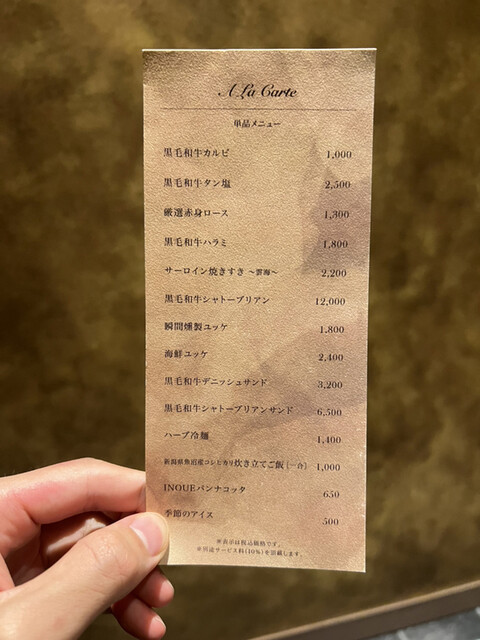 A La Carte
単品メニュー
黒毛和牛カルビ 1,000
黒毛和牛タン塩 2,500
厳選赤身ロース 1,300
黒毛和牛ハラミ 1,800
サーロイン焼きすき ～雲海～ 2,200
黒毛和牛シャトーブリアン 12,000
瞬間燻製ユッケ 1,800
海鮮ユッケ 2,400
黒毛和牛デニッシュサンド 3,200
黒毛和牛シャトーブリアンサンド 6,500
ハーブ冷麺 1,400
新潟県魚沼産コシヒカリ炊き立てご飯［一合］ 1,000
INOUEパンナコッタ 650
季節のアイス 500
※表示は税込価格です。
※別途サービス料(10%)を頂戴します。